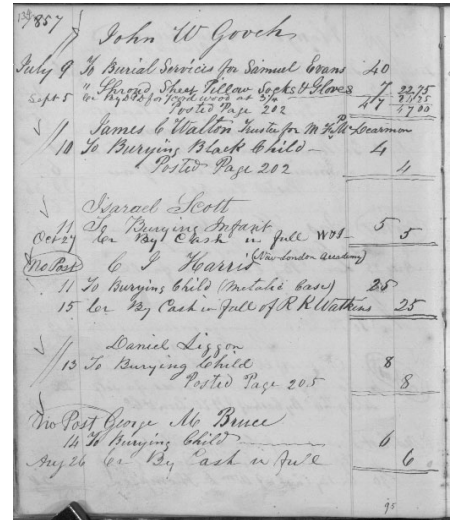 1857
John W Gooch
July 9 To Burial Services for Samuel Evans 40
" Shroud Sheet Pillow Socks & Gloves 7 22.75
Sept 5 Cr By 8 1/2 of wood at 47 24.25
Posted Page 202 47.00
James C Walton Trustee for M Learmon
10 To Burying Black Child 4
Posted Page 202 4
Isarael Scott
11 To Burying Infant 5
Oct 27 Cr By Cash in full 5
No Post C I Harris (New London Academy)
11 To Burying Child (Metalic Case) 25
15 Cr By Cash in full of R K Watkins 25
Daniel Liggon
13 To Burying Child 8
Posted Page 205 8
No Post George M Bruce
14 To Burying Child 6
Aug 26 Cr By Cash in full 6
95